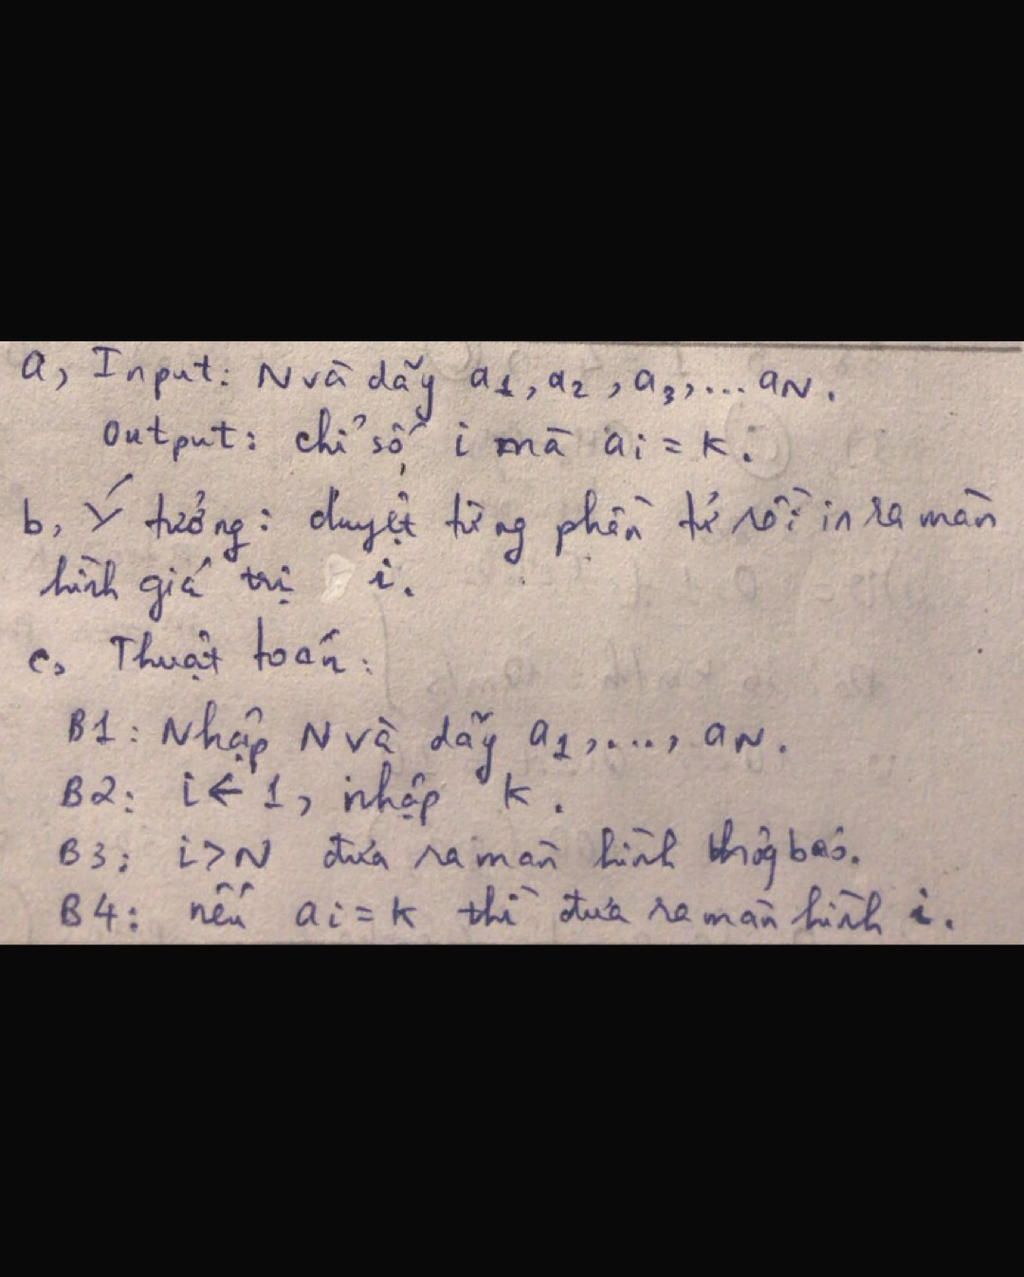 a, Input: N và dãy a1, a2, a3, ... aN.
Output: chỉ số i mà ai = k.
b, Ý tưởng: duyệt từng phần tử rồi in ra màn
hình giá trị i.
c, Thuật toán:
B1: Nhập N và dãy a1, ..., aN.
B2: i ← 1, nhập k.
B3: i > N đưa ra màn hình thôg báo.
B4: nếu ai = k thì đưa ra màn hình i.